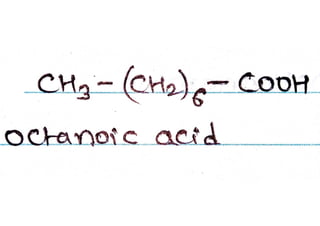 CH₃ – (CH₂)₆ – COOH
octanoic acid